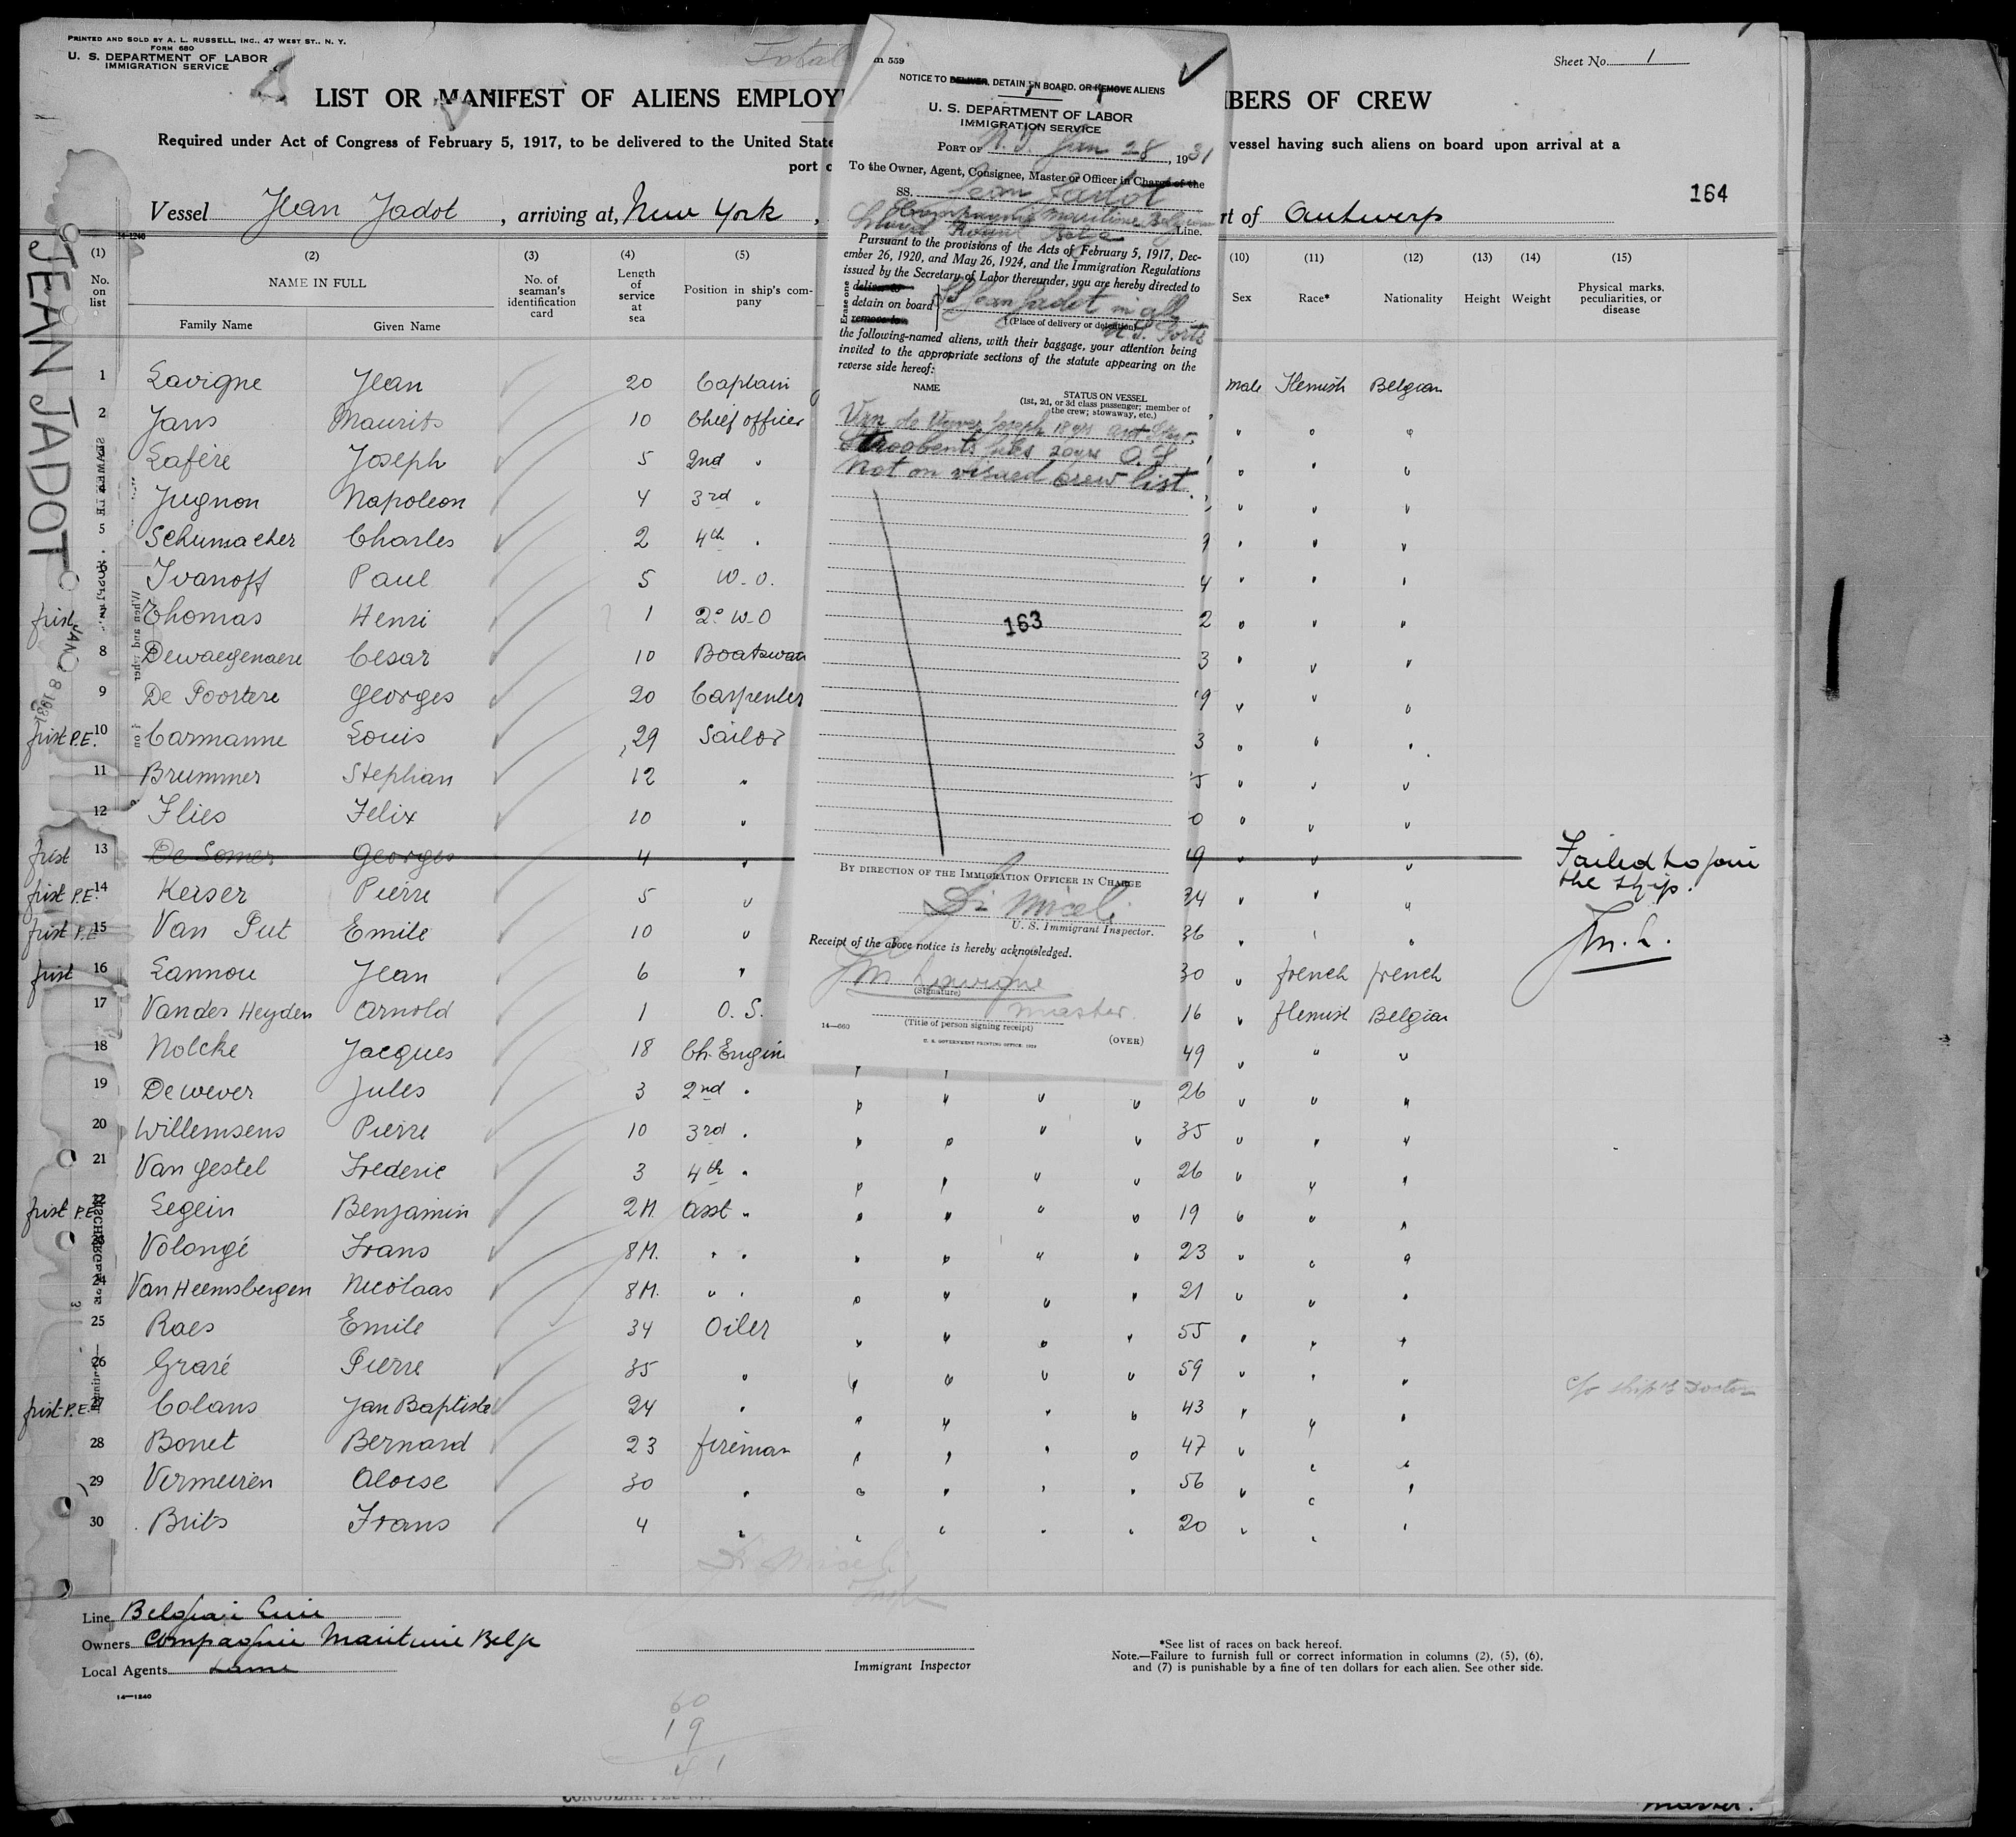 PRINTED AND SOLD BY A. L. RUSSELL, INC., 47 WEST ST., N. Y.
FORM 680
U. S. DEPARTMENT OF LABOR
IMMIGRATION SERVICE
Total
Sheet No. 1
LIST OR MANIFEST OF ALIENS EMPLOY
BERS OF CREW
Required under Act of Congress of February 5, 1917, to be delivered to the United State
vessel having such aliens on board upon arrival at a
port o
164
Vessel Jean Jadot, arriving at, New York,
rt of Antwerp
14-1240
JEAN JADOT
(1) (2) (3) (4) (5) (10) (11) (12) (13) (14) (15)
No. on list
NAME IN FULL
Family Name Given Name
No. of seaman's identification card
Length of service at sea
Position in ship's company
Sex Race* Nationality Height Weight
Physical marks, peculiarities, or disease
1 Lavigne Jean 20 Captain male Flemish Belgian
2 Jans Maurits 10 Chief officer
Lafère Joseph 5 2nd "
Jugnon Napoleon 4 3rd "
5 Schumacher Charles 2 4th "
Ivanoff Paul 5 W.O.
first Thomas Henri 1 2e W.O
8 Dewaegenaere Cesar 10 Boatswa
9 De Poortere Georges 20 Carpenter
first P.E. 10 Carmanne Louis 29 Sailor
11 Brummer Stephan 12 "
12 Flies Felix 10 "
first 13 De Somer Georges 4 " Failed to join the ship. J.M.L.
first P.E. 14 Keiser Pierre 5 " 34
first P.E 15 Van Put Emile 10 " 36
first 16 Lannou Jean 6 " 30 " french french
17 Vander Heyden Arnold 1 O. S. 16 " flemish Belgian
18 Nolcke Jacques 18 Ch. Engin 49
19 Dewever Jules 3 2nd " 26
20 Willemsens Pierre 10 3rd " 35
21 Van Gestel Frederic 3 4th " 26
first P.E. 22 Legein Benjamin 2M. asst " 19
Volongé Frans 8M. " " 23
24 Van Heemsbergen Nicolaas 8M. " " 21
25 Raes Emile 34 Oiler 55
26 Graré Pierre 35 " 59
first P.E. 27 Colans Jan Baptiste 24 " 43 c/o ship's Doctor
28 Bonet Bernard 23 fireman 47
29 Vermeiren Aloise 30 " 56
30 Brits Frans 4 " 20
Line Belgian Line
Owners Compagnie Maritime Belge
Local Agents same
14—1240
Immigrant Inspector
*See list of races on back hereof.
Note.—Failure to furnish full or correct information in columns (2), (5), (6),
and (7) is punishable by a fine of ten dollars for each alien. See other side.
60
19
41
master.
m 559
NOTICE TO DELIVER, DETAIN ON BOARD, OR REMOVE ALIENS
U. S. DEPARTMENT OF LABOR
IMMIGRATION SERVICE
PORT OF N.Y. Jan 28, 1931
To the Owner, Agent, Consignee, Master or Officer in Charge of the
SS. Jean Jadot
Compagnie Maritime Belge
Lloyd Royal Belge Line.
Pursuant to the provisions of the Acts of February 5, 1917, Dec-
ember 26, 1920, and May 26, 1924, and the Immigration Regulations
issued by the Secretary of Labor thereunder, you are hereby directed to
Erase one
deliver to
detain on board
remove to
SS Jean Jadot in all
U.S. Ports
(Place of delivery or detention)
the following-named aliens, with their baggage, your attention being
invited to the appropriate sections of the statute appearing on the
reverse side hereof:
NAME
STATUS ON VESSEL
(1st, 2d, or 3d class passenger; member of
the crew; stowaway, etc.)
Joseph 18 yrs
Stroobents 20 yrs O.S
Not on visaed crew list.
163
BY DIRECTION OF THE IMMIGRATION OFFICER IN CHARGE
Di Miceli
U. S. Immigrant Inspector.
Receipt of the above notice is hereby acknowledged.
JM Lavigne
(Signature)
Master.
(Title of person signing receipt)
14—660
U. S. GOVERNMENT PRINTING OFFICE: 1929
(OVER)